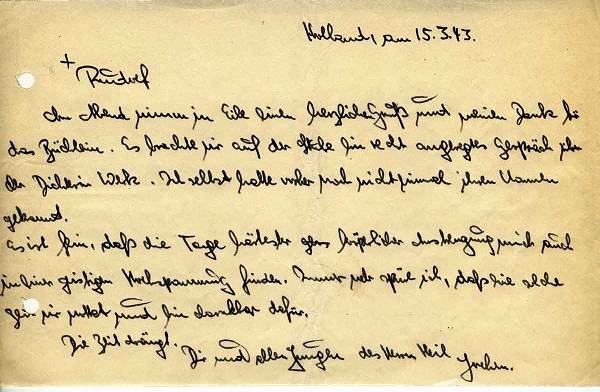 Holland, am 15.3.43.
+
Rudolf
Am Abend nimm in Eile einen herzlichen Gruß und meinen Dank für
das Büchlein. Es brachte mir auf der Stelle ein recht angeregtes Gespräch über
der Dichterin Werk. Ich selbst hatte vorher noch nicht einmal ihren Namen
gekannt.
Es ist fein, daß die Tage härtester körperlicher Anstrengung mich auch
in einer geistigen Hochspannung finden. Immer mehr spür ich, daß die
mir und bin dankbar dafür.
Die Zeit drängt.
Dir und allen Jungen des Herrn Heil